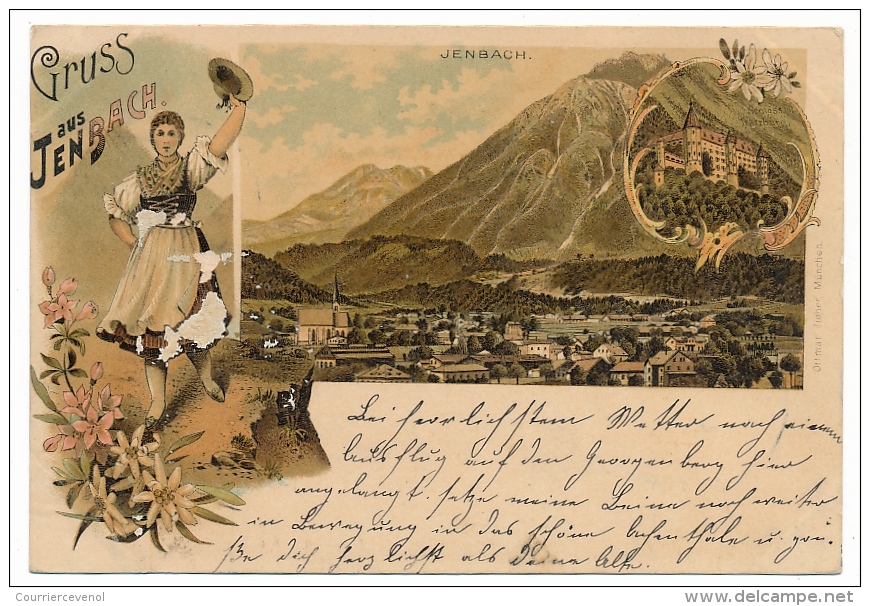 Gruss
aus
JENBACH.
JENBACH.
Schloss
Ottmar Zieher, München.
Bei herrlichstem Wetter nach einem
Ausflug auf den Georgenberg hier
angelangt, setze meine Beine noch weiter
in Bewegung in das schöne Achenthale u. grü-
ße dich herzlichst als Deine Alte.
Courriercevenol
www.delcampe.net